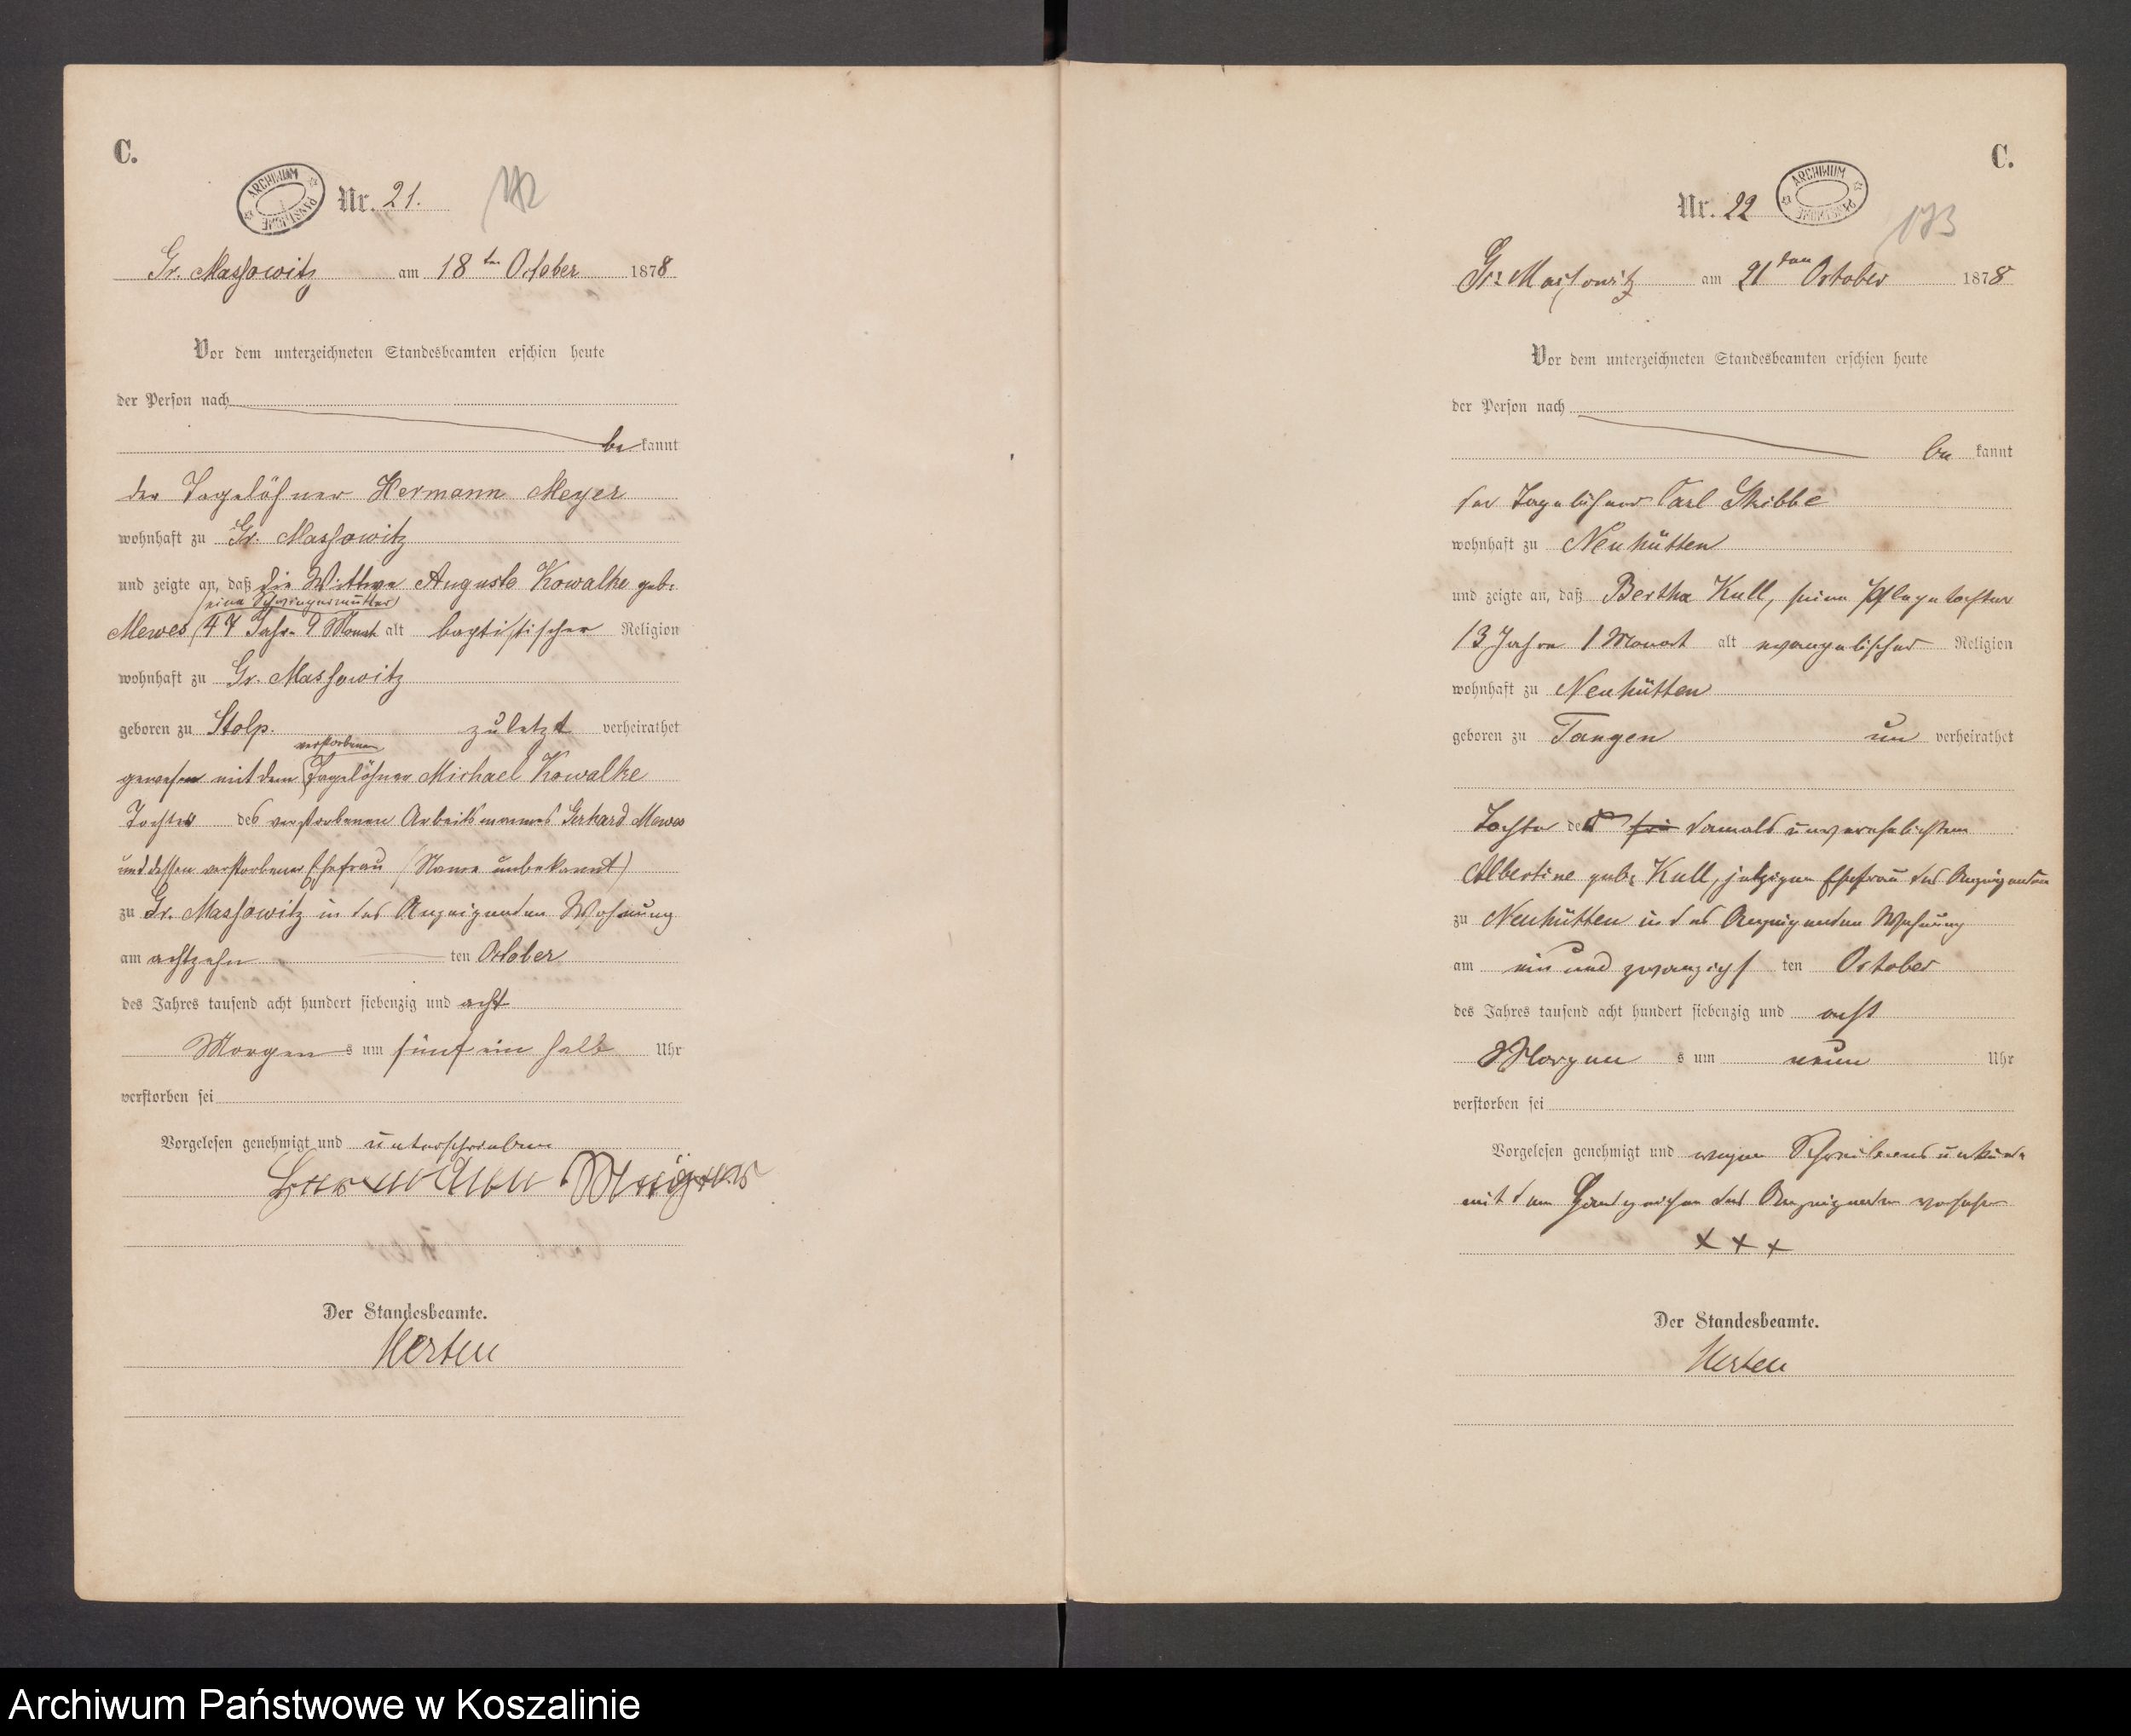 C.
ARCHIWUM PAŃSTWOWE
Nr. 21.
172
Gr. Massowitz am 18ten October 1878
Vor dem unterzeichneten Standesbeamten erschien heute
der Person nach
be kannt
der Tagelöhner Hermann Meyer
wohnhaft zu Gr. Massowitz
und zeigte an, daß die Wittwe Auguste Kowalke geb:
seine Schwiegermutter
Mewes, 47 Jahr 9 Monat alt baptistischer Religion
wohnhaft zu Gr. Massowitz
geboren zu Stolp. zuletzt verheirathet
verstorbenen
gewesen mit dem Tagelöhner Michael Kowalke
Tochter des verstorbenen Arbeitsmannes Gerhard Mewes
und dessen verstorbener Ehefrau (Name unbekannt)
zu Gr. Massowitz in des Anzeigenden Wohnung
am achtzehn ten October
des Jahres tausend acht hundert siebenzig und acht
Morgen s um fünf ein halb Uhr
verstorben sei
Vorgelesen genehmigt und unterschrieben
Der Standesbeamte.
Merten
C.
Nr. 22
ARCHIWUM PAŃSTWOWE
173
Gr: Massowitz am 21ten October 1878
Vor dem unterzeichneten Standesbeamten erschien heute
der Person nach
be kannt
der Tagelöhner Carl Skibbe
wohnhaft zu Neuhütten
und zeigte an, daß Bertha Kull, seine Pflegetochter
13 Jahre 1 Monat alt evangelischer Religion
wohnhaft zu Neuhütten
geboren zu Tangen un verheirathet
Tochter der damals unverehelichten
Albertine geb: Kull, jetzigen Ehefrau des Anzeigenden
zu Neuhütten in des Anzeigenden Wohnung
am ein und zwanzigs ten October
des Jahres tausend acht hundert siebenzig und acht
Morgen s um neun Uhr
verstorben sei
Vorgelesen genehmigt und wegen Schreibensunkunde
mit dem Handzeichen des Anzeigenden versehen
+ + +
Der Standesbeamte.
Merten
Archiwum Państwowe w Koszalinie